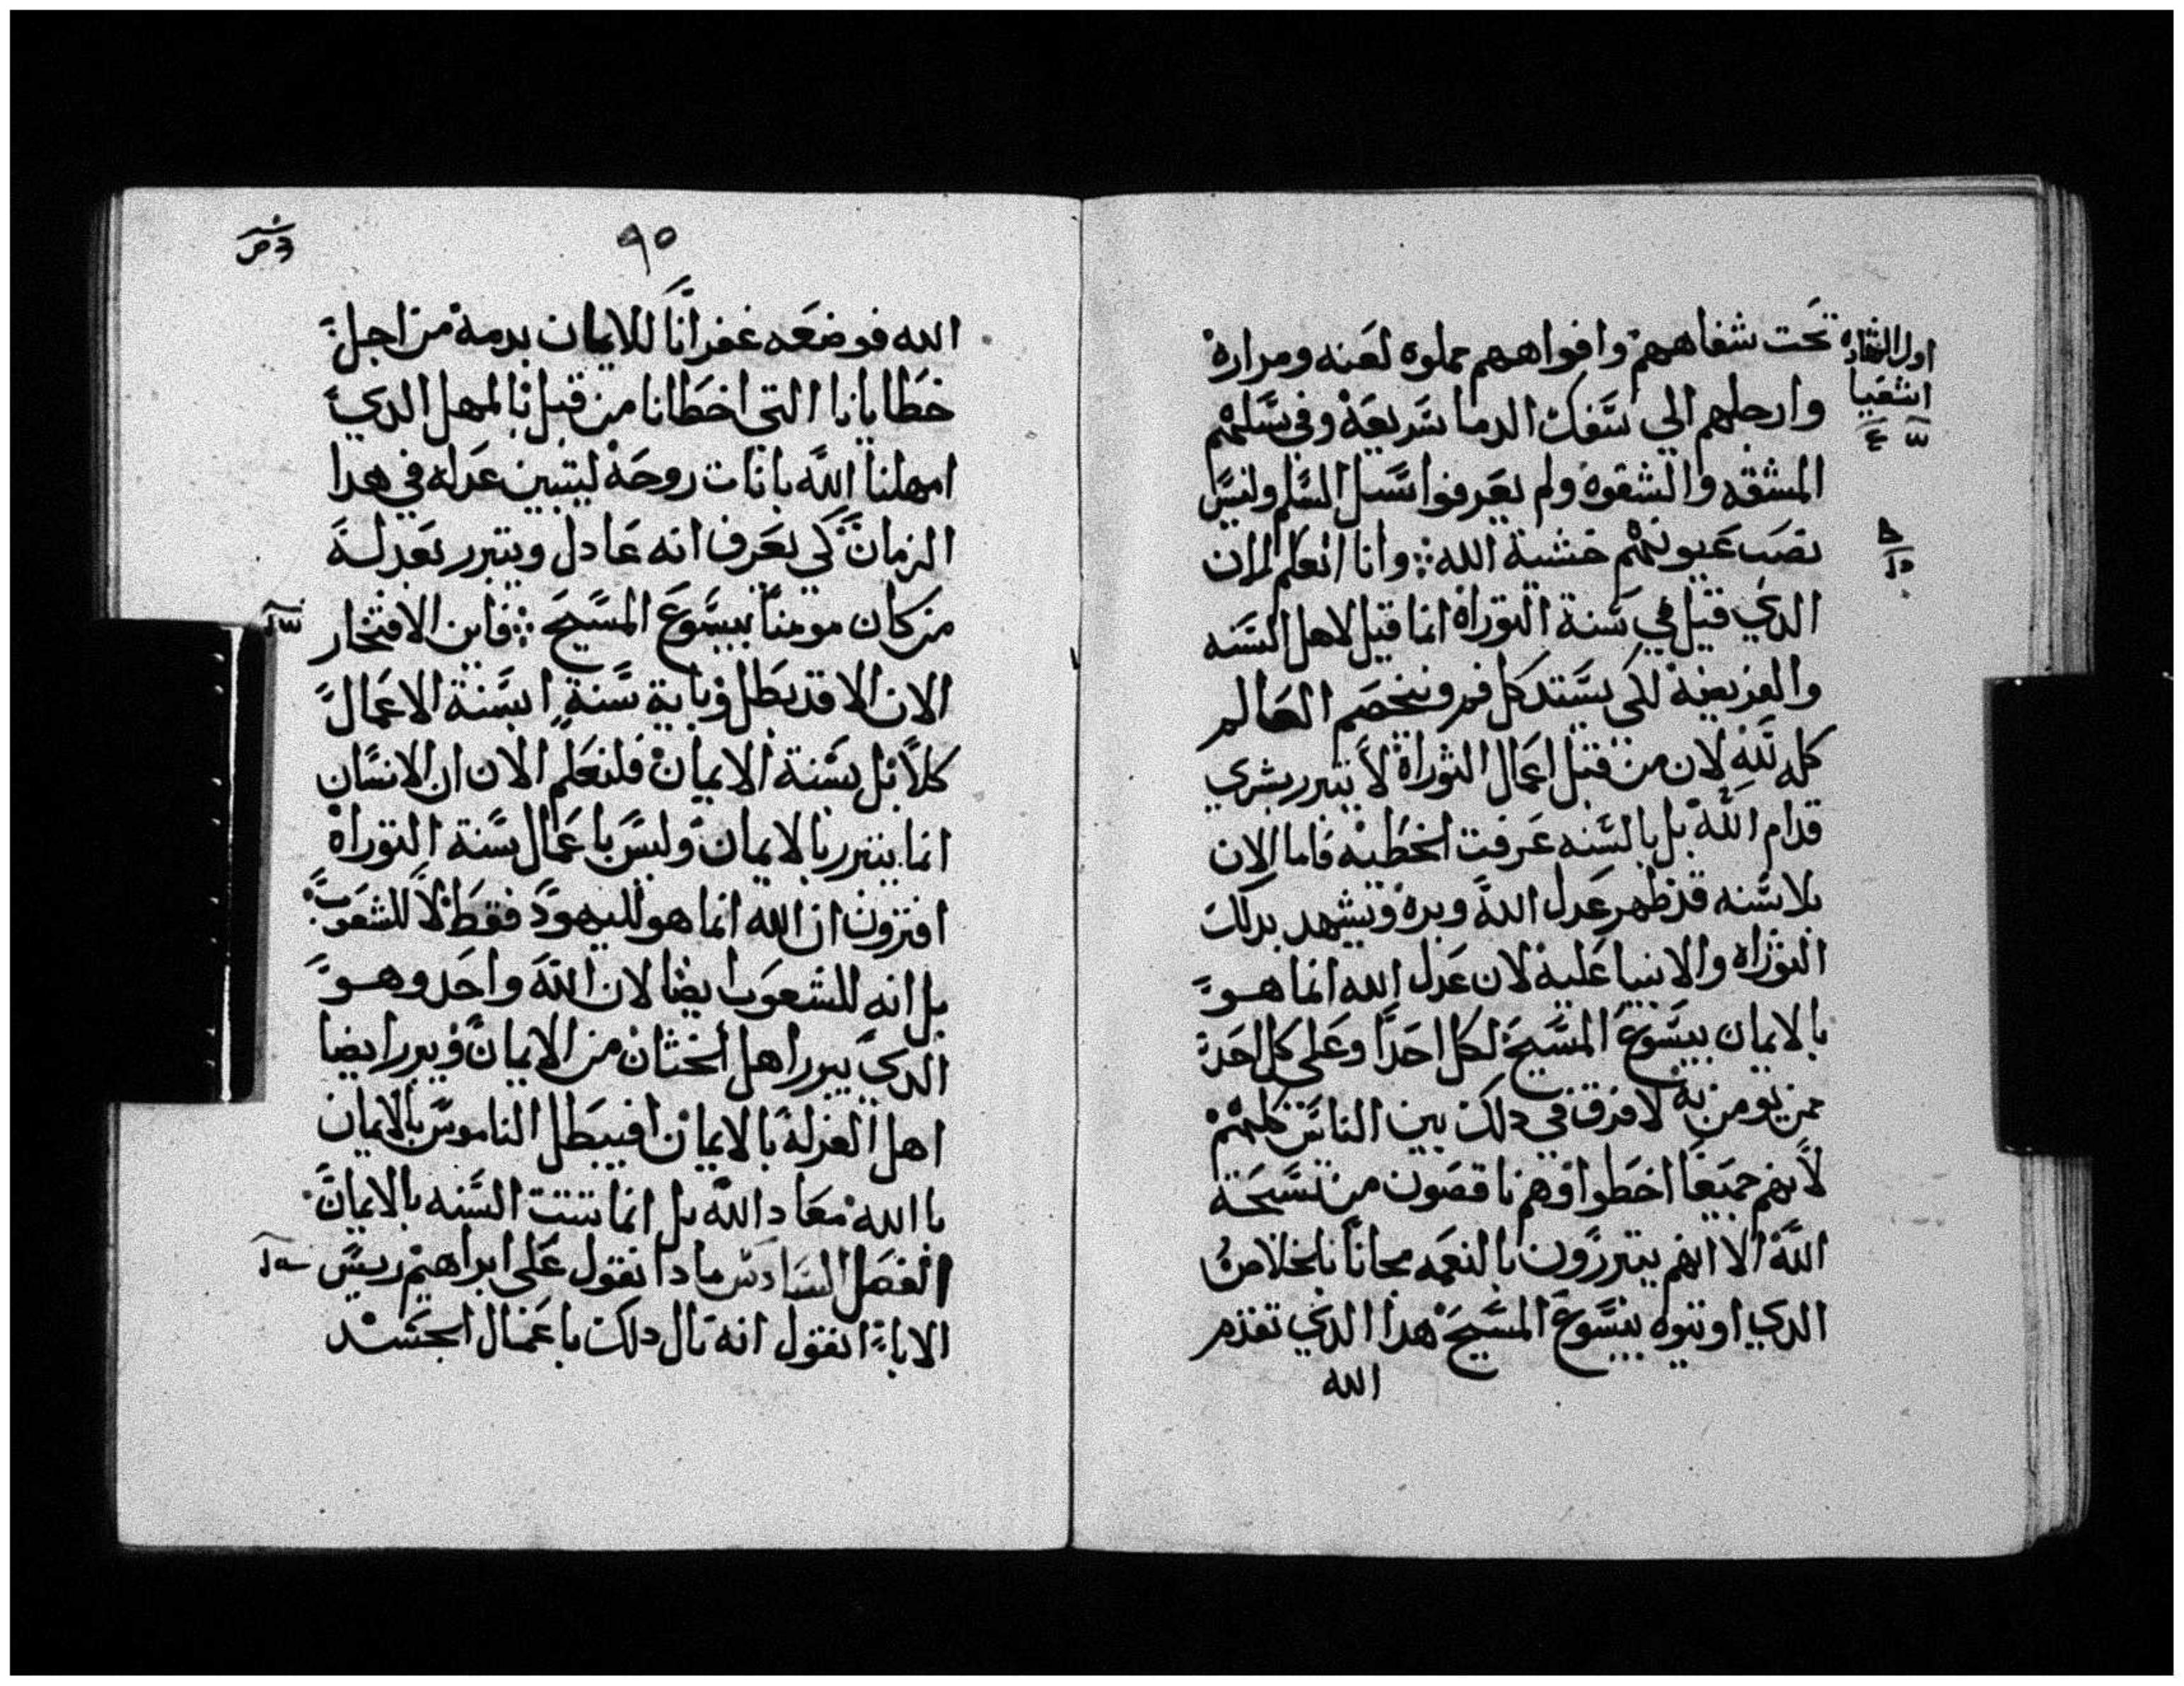 تحت شفاههم وافواههم مملوه لعنه ومراره
وارجلهم الي سفك الدما سريعة وفي سبلهم
المشقه والشقوه ولم يعرفوا سبل السلم وليس
نصب عيونهم خشية الله وانا انعلم الان
الدي قيل في سنة التوراة انما قيل لاهل السنه
والفريضة لكي يستد كل فم ويخصم العالم
كله لله لان من قبل اعمال التوراة لا يتبرر بشري
قدام الله بل بالسنه عرفت الخطيه فاما الان
بلا سنه قد ظهر عدل الله وبره ويشهد بدلك
التوراه والانبيا علية لان عدل الله انما هو
بالايمان بيسوع المسيح لكل احد وعلي كل احد
ممن يومن به لا فرق في دلك بين الناس كلهم
لانهم جميعا اخطوا وهم ناقصون من تسبحة
الله الا انهم يتبررون بالنعمه مجانا بالخلاص
الدي اوتوه بيسوع المسيح هدا الدي تقدم
الله
اول الشهاده
اشعيا
٩٥
الله فوضعه غفرانا للايمان بدمة من اجل
خطايانا التي اخطانا من قبل بالمهل الدي
امهلنا الله باناة روحة ليتبين عدله في هدا
الزمان كي يعرف انه عادل ويتبرر بعدله
من كان مومنا بيسوع المسيح فاين الافتخار
الان الا قد بطل وباية سنة ابسنة الاعمال
كلا بل بسنة الايمان فلنعلم الان ان الانسان
انما يتبرر بالايمان وليس باعمال سنة التوراة
افترون ان الله انما هو لليهود فقط لا للشعوب
بل انه للشعوب ايضا لان الله واحد وهو
الدي يبرر اهل الختان من الايمان ويبرر ايضا
اهل الغرلة بالايمان افيبطل الناموس بالايمان
باالله معاد الله بل انما تثبت السنه بالايمان
الفصل السادس مادا نقول علي ابراهيم ريس
الاباء انقول انه نال دلك باعمال الجسد